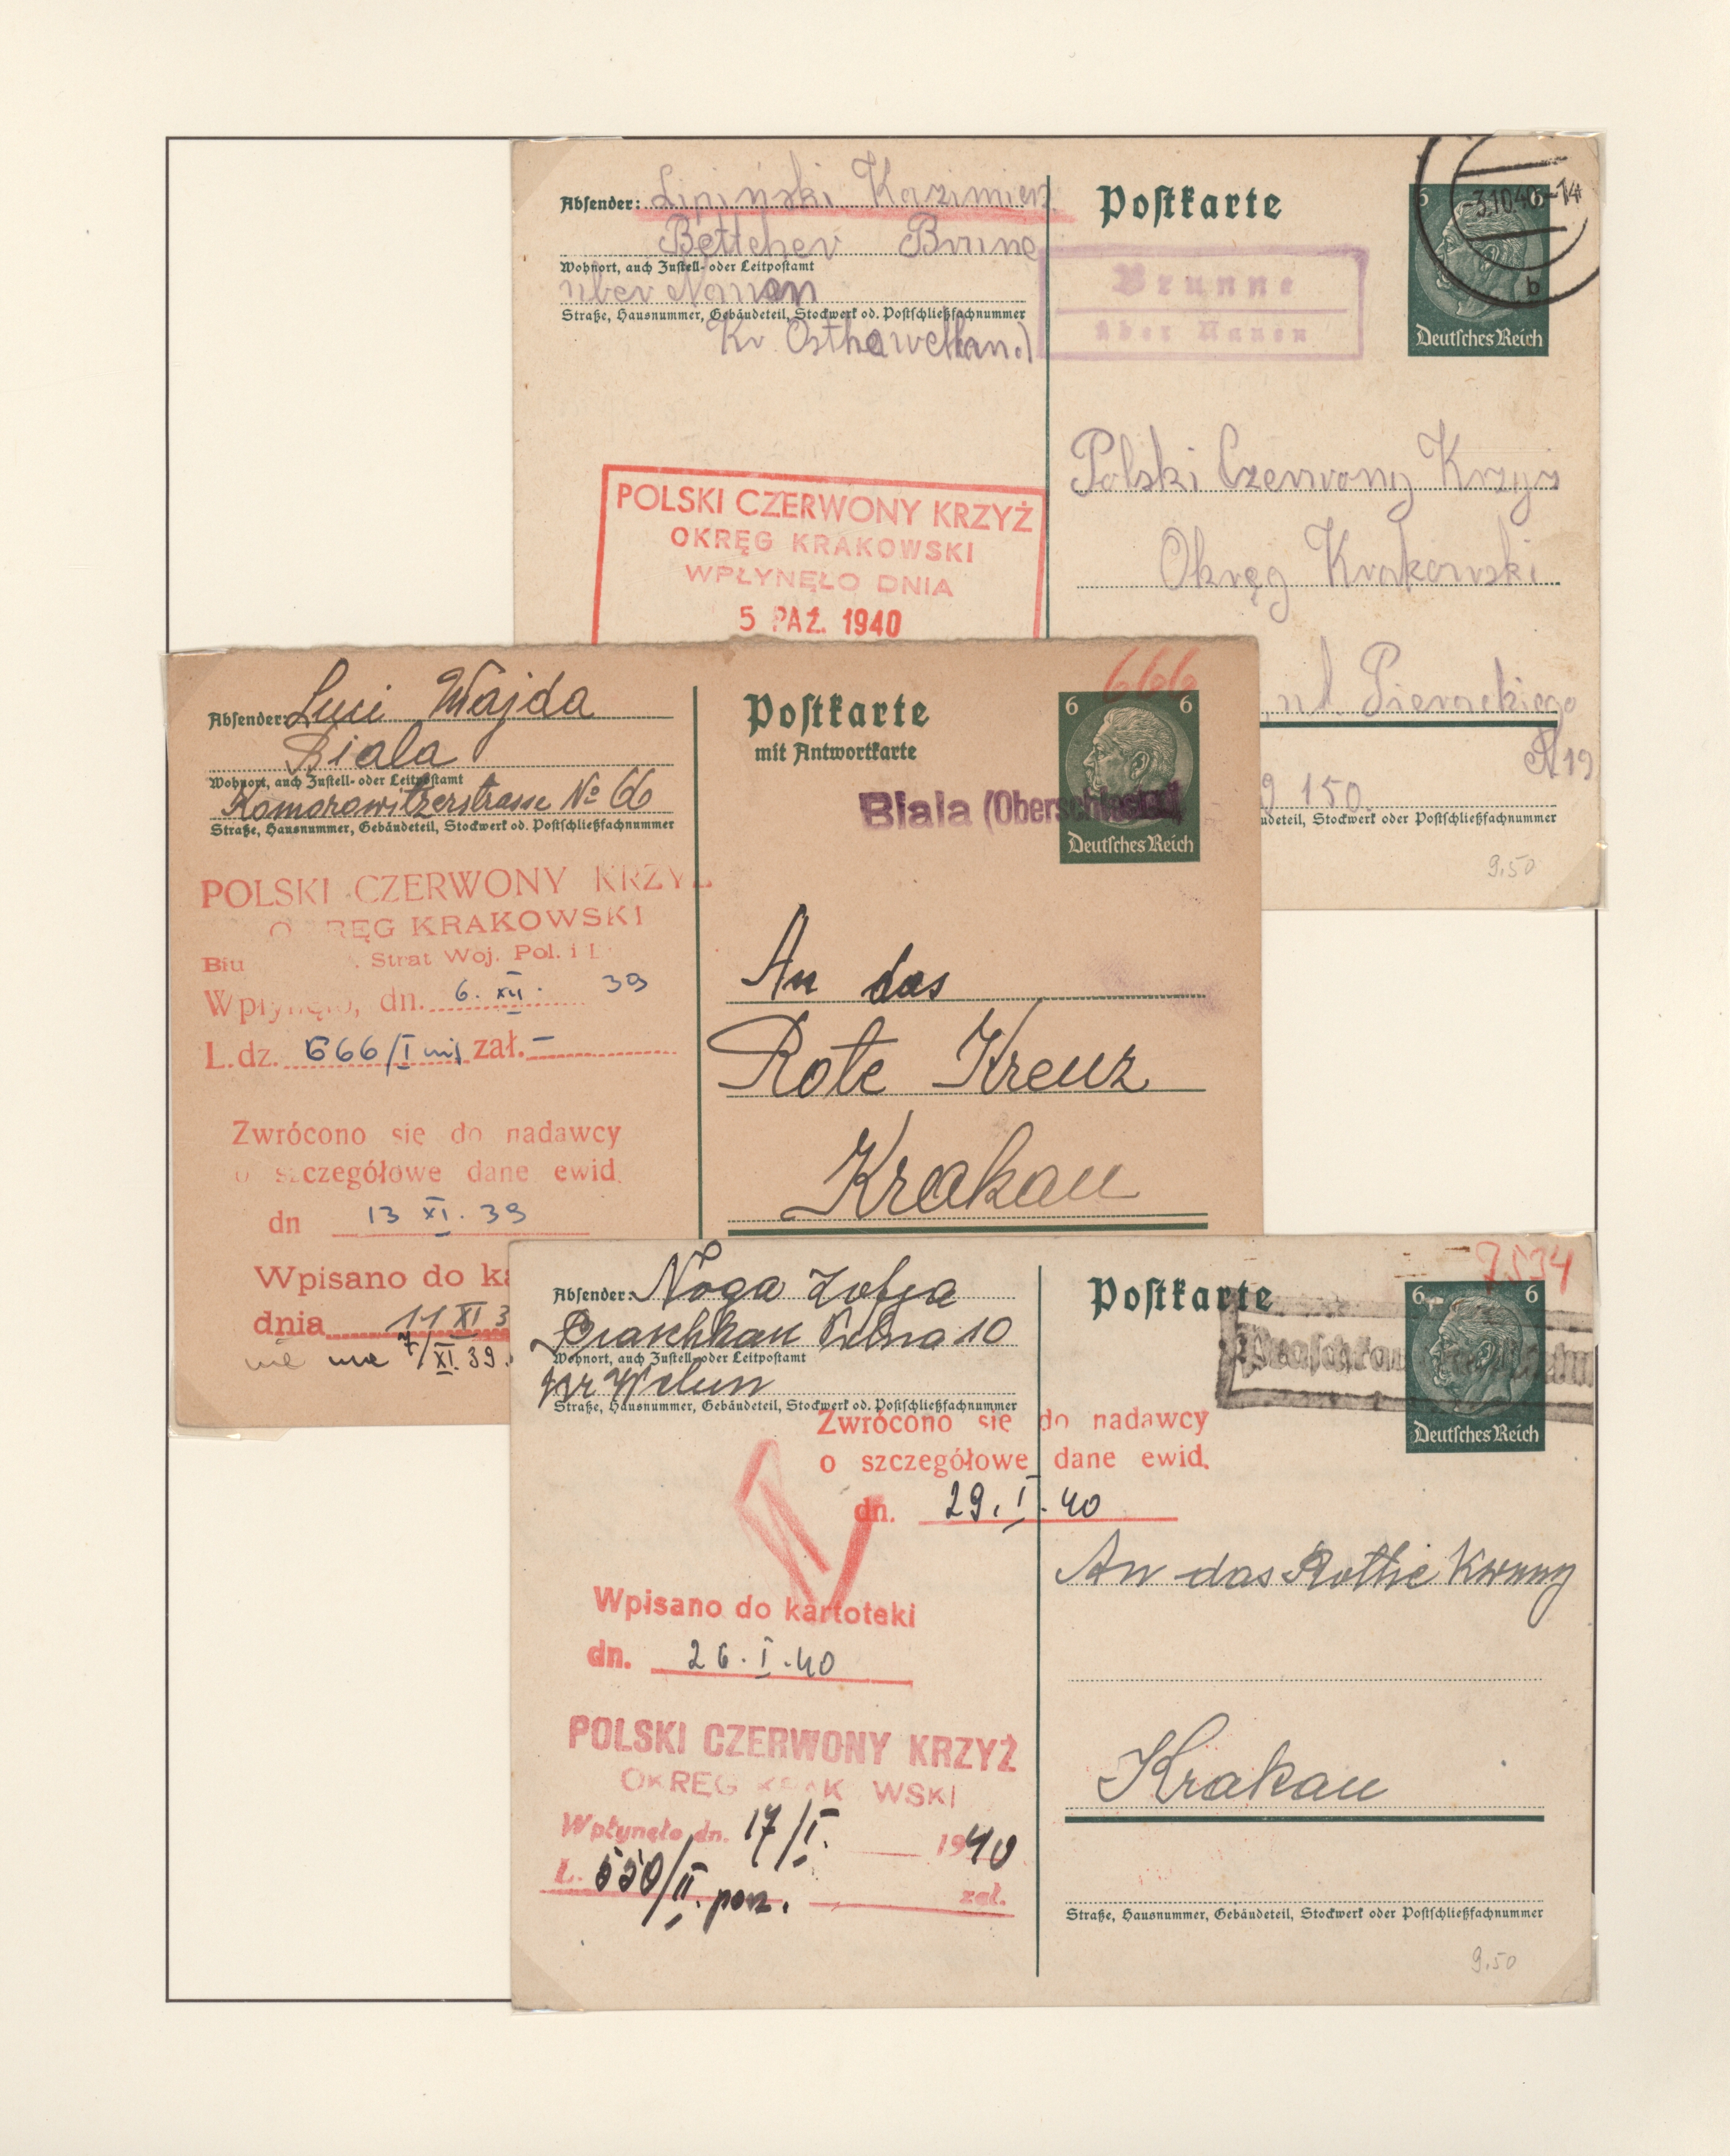 Absender: Lipiński Kazimierz
Bettcher Brune
Wohnort, auch Zustell- oder Leitpostamt
über Nauen
Straße, Hausnummer, Gebäudeteil, Stockwerk od. Postschließfachnummer
Kr. Osthavelland
Postkarte
6 6
3.10.40-14
b
Deutsches Reich
Brunne
über Nauen
POLSKI CZERWONY KRZYŻ
OKRĘG KRAKOWSKI
WPŁYNĘŁO DNIA
5 PAŹ. 1940
Polski Czerwony Krzyż
Okręg Krakowski
ul. Pierackiego
N 19
150
udeteil, Stockwerk oder Postschließfachnummer
9.50
Absender: Luci Wajda
Biala
Wohnort, auch Zustell- oder Leitpostamt
Komorowitzerstrasse No 66
Straße, Hausnummer, Gebäudeteil, Stockwerk od. Postschließfachnummer
Postkarte
mit Antwortkarte
666
6 6
Biala (Oberschlesien)
Deutsches Reich
POLSKI CZERWONY KRZYŻ
OKRĘG KRAKOWSKI
Biu Strat Woj. Pol. i
Wpłynęło, dn. 6. XII. 39
L.dz. 666/I zał. –
Zwrócono się do nadawcy
o szczegółowe dane ewid.
dn 13 XI. 39
Wpisano do ka
dnia 11 XI 3
nie ma 7/XI. 39.
An das
Rote Kreuz
Krakau
Absender: Noga Zofja
Praschkau 10
Wohnort, auch Zustell- oder Leitpostamt
Welun
Straße, Hausnummer, Gebäudeteil, Stockwerk od. Postschließfachnummer
Postkarte
7534
6 6
Praschkau
Deutsches Reich
Zwrócono się do nadawcy
o szczegółowe dane ewid.
dn. 29. I. 40
Wpisano do kartoteki
dn. 26. I. 40
POLSKI CZERWONY KRZYŻ
OKRĘG KRAKOWSKI
Wpłynęło dn. 17/I. 1940
L. 550/II. pow. zał.
An das Rothe
Krakau
Straße, Hausnummer, Gebäudeteil, Stockwerk oder Postschließfachnummer
9.50